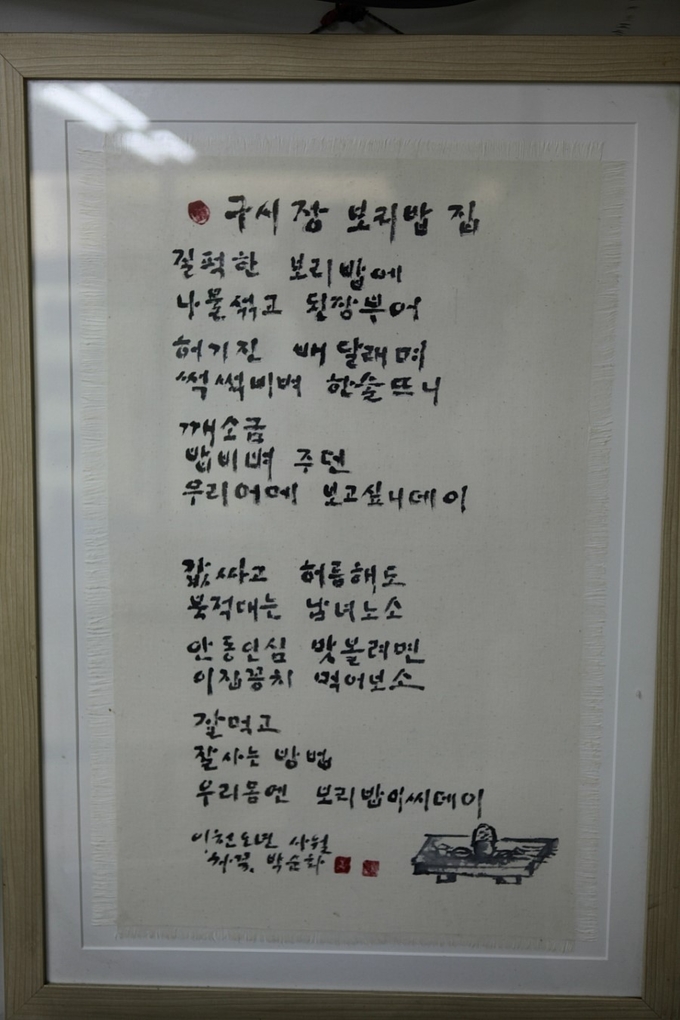 구시장 보리밥 집
질퍽한 보리밥에
나물 섞고 된장 부어
허기진 배 달래며
썩썩 비벼 한술 뜨니
깨소금
밥 비벼 주던
우리 어메 보고싶니데이
값싸고 허름해도
북적대는 남녀노소
안동인심 맛볼려면
이집 꽁치 먹어보소
잘먹고
잘사는 방법
우리몸엔 보리밥이씨데이
이천도년 사월
박순화